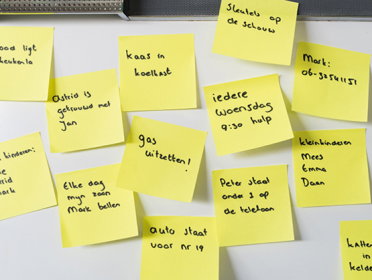 sleutels op
de schouw
ligt
kaas in
koelkast
Mark:
06-92541151
Astrid is
getrouwd met
Jan
iedere
woensdag
9:30 hulp
gas
uitzetten!
kleinkinderen
Mees
Emma
Daan
kinderen:
Elke dag
mijn zoon
Mark bellen
Peter staat
onder 3 op
de telefoon
auto staat
voor nr 19
in